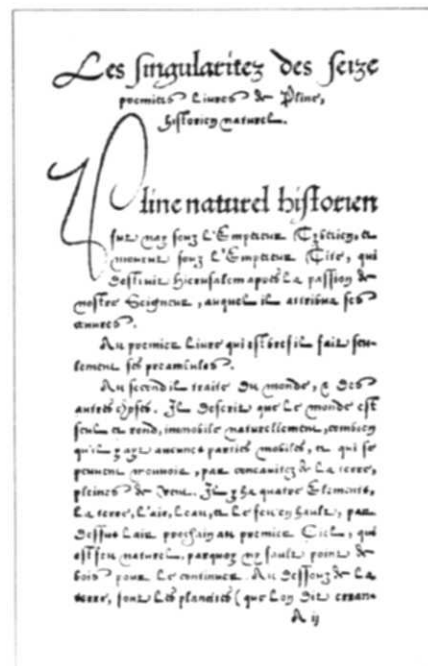 Les singularitez des seize
premiers Livres de Pline,
historien naturel.
Pline naturel historien
fut nay souz l'Empereur Tyberien, et
mourut souz l'Empereur Tite, qui
destruit Hierusalem apres la passion de
nostre Seigneur, auquel il attribua ses
œuures.
Au premier Livre qui est bref il fait seu-
lement ses preambules.
Au second il traite du monde, & des
autres choses. Il descrit que le monde est
seul et rond, immobile naturellement, combien
qu'il y ayt aucunes parties mobiles, et qui se
peuuent mouuoir, par concauitez de la terre,
pleines de vent. Il y ha quatre Elements,
la terre, l'air, l'eau, et le feu en hault, par
dessus l'air prochain au premier Ciel, qui
est feu naturel, parquoy n'y fault point de
bois pour le continuer. Au dessouz de la
terre, sont les planettes (que l'on dit erran-
A ij